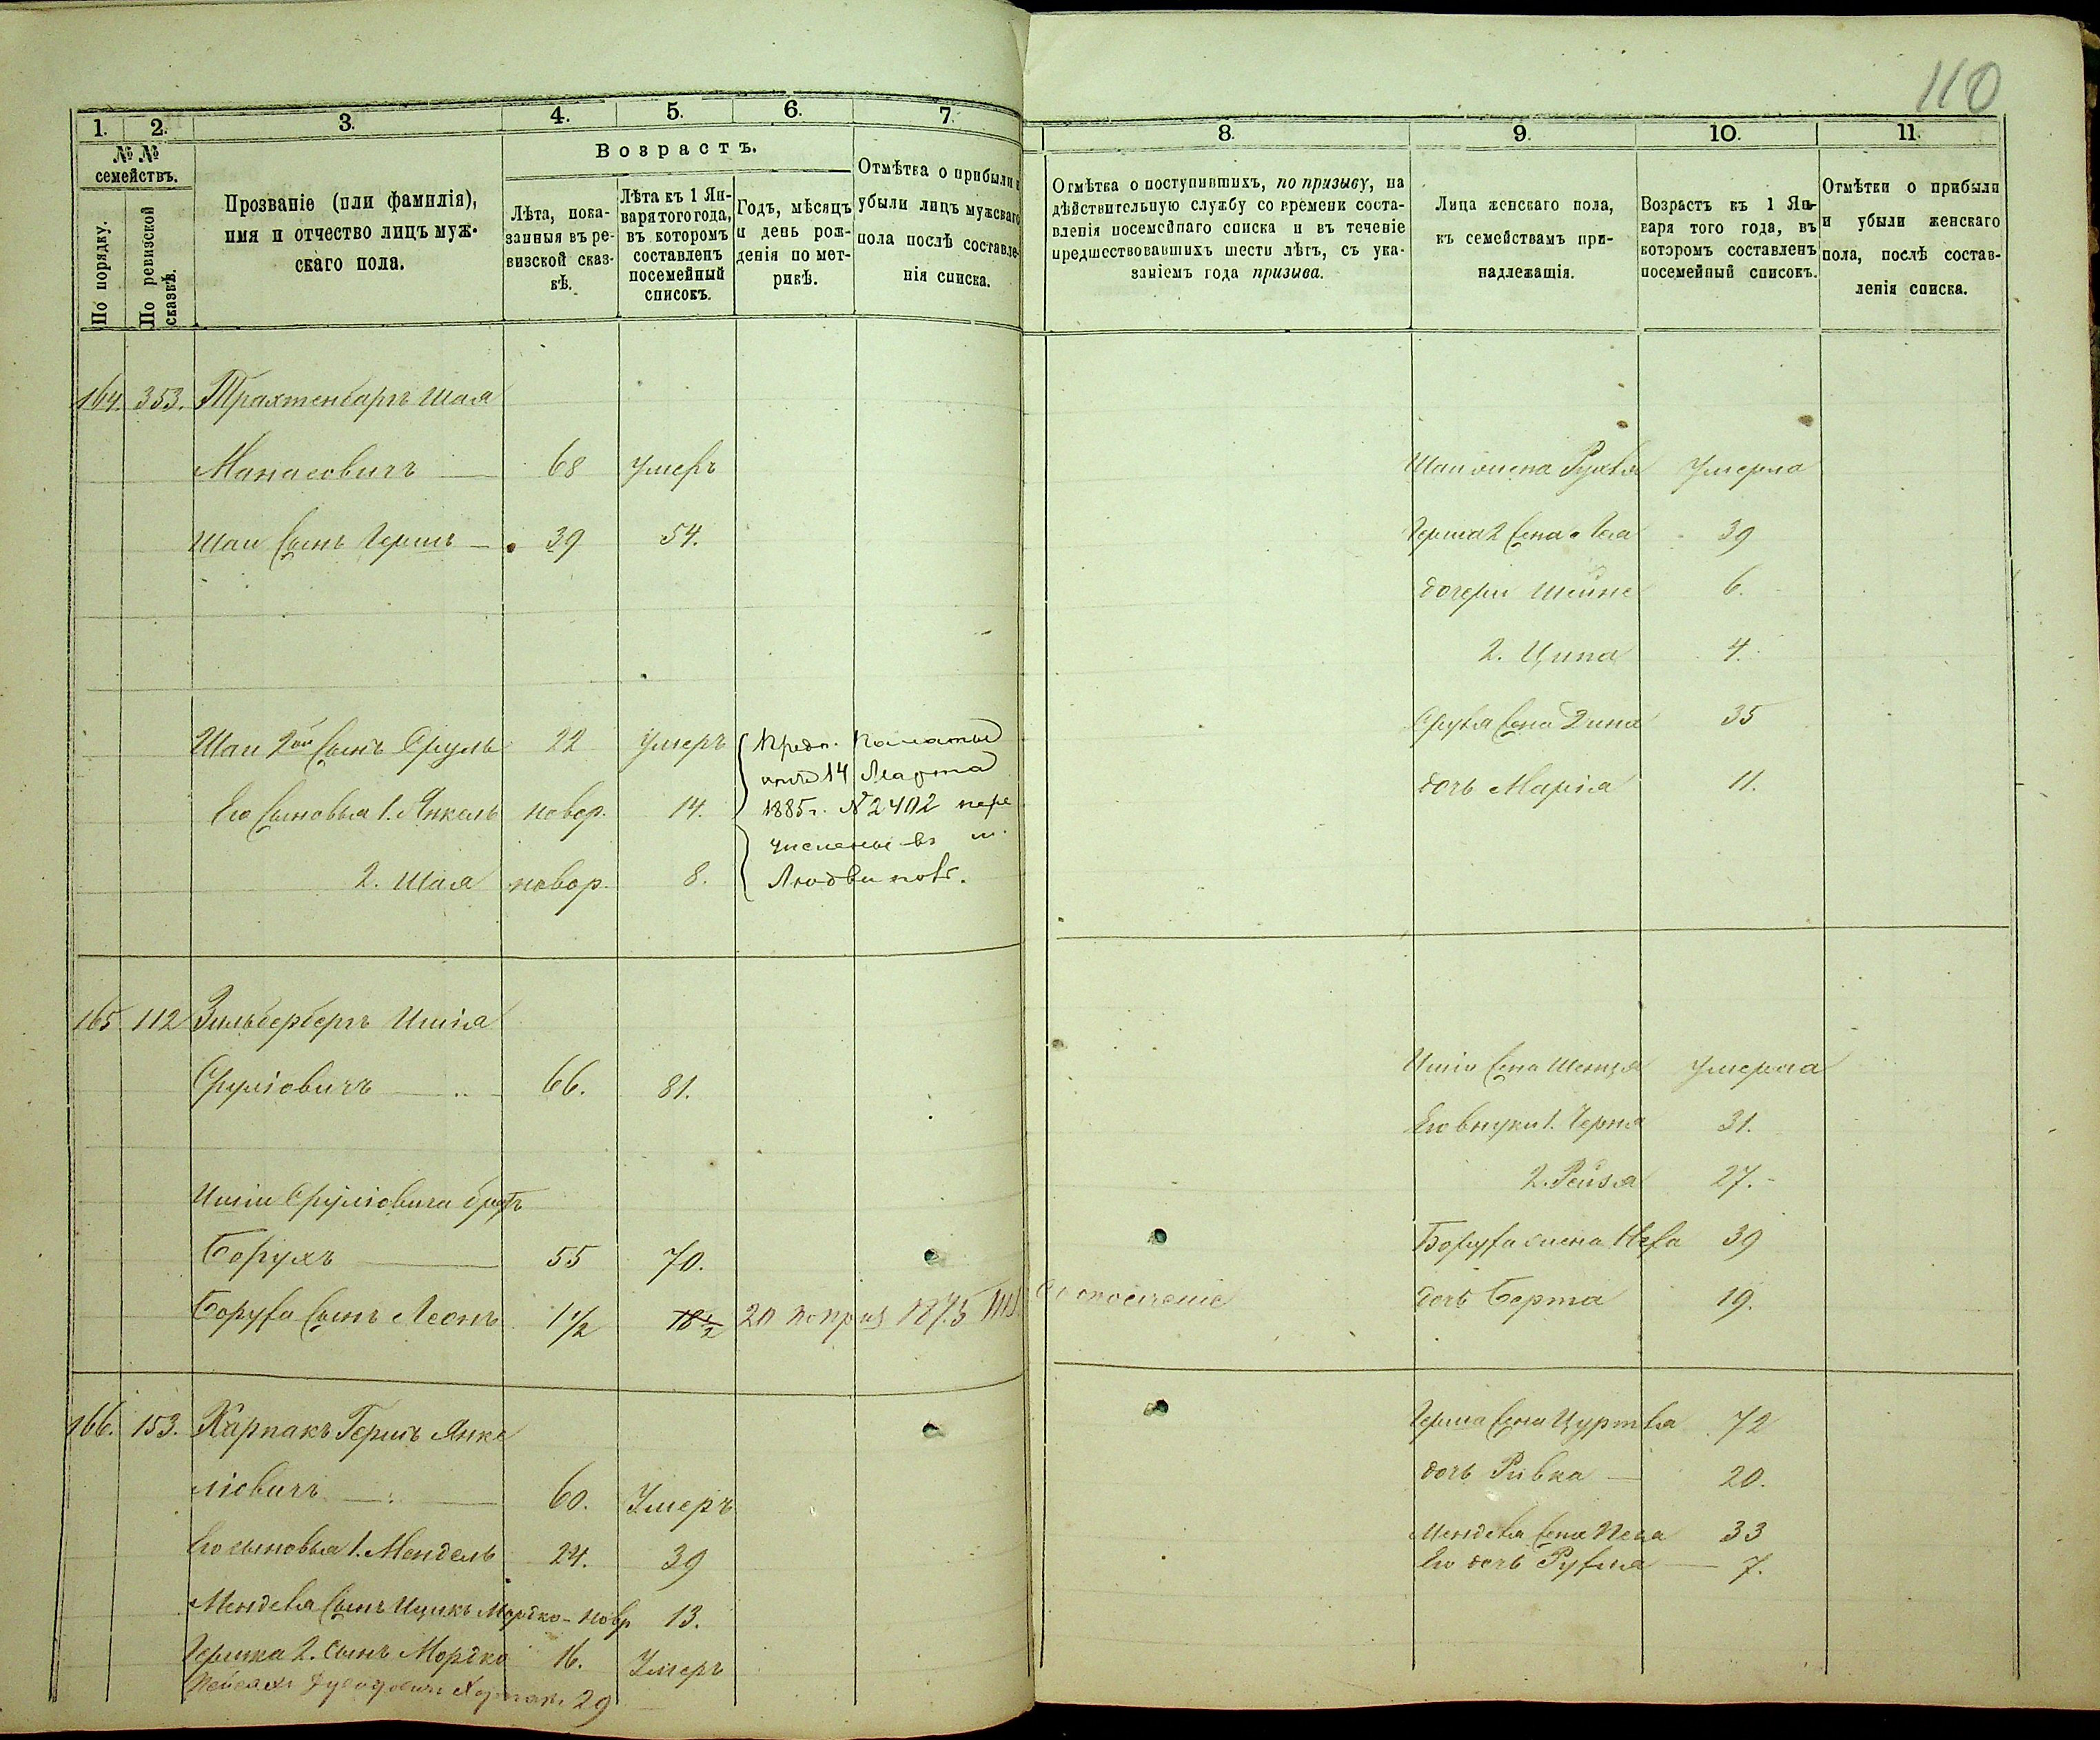 110
1. 2. 3. 4. 5. 6. 7.
№ №
семействъ.
По порядку.
По ревизской сказкѣ.
Прозваніе (или фамилія),
имя и отчество лицъ муж-
скаго пола.
Возрастъ.
Лѣта, пока-
занныя въ ре-
визской сказ-
кѣ.
Лѣта къ 1 Ян-
варя того года,
въ которомъ
составленъ
посемейный
списокъ.
Годъ, мѣсяцъ
и день рож-
денія по мет-
рикѣ.
Отмѣтка о прибыли и
убыли лицъ мужскаго
пола послѣ составле-
нія списка.
164. 353. Трахтенбаргъ Шая
Манасовичъ 68 умеръ
Шаи Сынъ Гершъ 39 54.
Шаи 2ой Сынъ Сруль 22 умеръ
Его Сыновья 1. Янкель новор. 14.
2. Шая новор. 8.
Предп. Палаты
14 Марта
1885 г. № 2402 пере
числены въ м.
165 112 Зильбербергъ Ишія
Сруліовичъ 66. 81.
Ишіи Сруліовича братъ
Борухъ 55 70.
Боруха Сынъ Леонъ 1 1/2 18 1/2 20 по приз 1875
166. 153. Карпакъ Гершъ Янке
ліовичъ 60. Умеръ
Его сыновья 1. Мендель 24. 39
Менделя Сынъ Ицикъ Мордко новр 13.
Гершка 2. сынъ Мордко 16. Умеръ
29
8. 9. 10. 11.
Отмѣтка о поступившихъ, по призыву, на
дѣйствительную службу со времени соста-
вленія посемейнаго списка и въ теченіе
предшествовавшихъ шести лѣтъ, съ ука-
заніемъ года призыва.
Лица женскаго пола,
къ семействамъ при-
надлежащія.
Возрастъ къ 1 Ян-
варя того года, въ
которомъ составленъ
посемейный списокъ.
Отмѣтки о прибыли
и убыли женскаго
пола, послѣ состав-
ленія списка.
Шаи жена Рухля умерла
Герша жена Лея 39
дочери Шейне 6.
2. Ципа 4.
Сруля жена Дина 35
дочь Марія 11.
Ишіи жена умерла
Его внуки 1. Черня 31.
2. Рейзя 27.
Боруха жена 39
дочь Берта 19.
Герша жена Цуртля 72
дочь Ривка 20.
Менделя жена Песя 33
Его дочь Рухля 7.